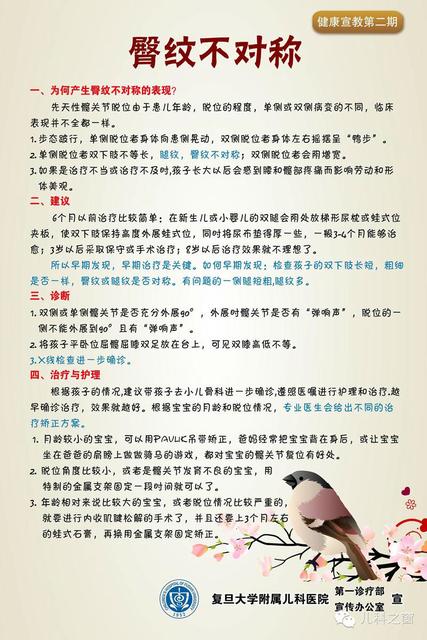 健康宣教第二期
臀纹不对称
一、为何产生臀纹不对称的表现?
先天性髋关节脱位由于患儿年龄，脱位的程度，单侧或双侧病变的不同，临床
表现并不全都一样。
1.步态跛行，单侧脱位者身体向患侧晃动，双侧脱位者身体左右摇摆呈“鸭步”。
2.单侧脱位者双下肢不等长，腿纹，臀纹不对称；双侧脱位者会阴增宽。
3.如果是治疗不当或治疗不及时,孩子长大以后会感到腰和髋部疼痛而影响劳动和形
体美观。
二、建议
6个月以前治疗比较简单：在新生儿或小婴儿的双腿会阴处放梯形尿枕或蛙式位
夹板，使双下肢保持高度外展蛙式位，同时将尿布垫得厚一些，一般3-4个月能够治
愈；3岁以后采取保守或手术治疗；8岁以后治疗效果就不理想了。
所以早期发现，早期治疗是关键。如何早期发现：检查孩子的双下肢长短，粗细
是否一样，臀纹或腿纹是否对称。有问题的一侧腿短粗,腿纹多。
三、诊断
1.双侧或单侧髋关节是否充分外展90°，外展时髋关节是否有“弹响声”，脱位的一
侧不能外展到90°且有“弹响声”。
2.将孩子平卧位屈髋屈膝双足放在台上，可见双膝高低不等。
3.X线检查进一步确诊。
四、治疗与护理
根据孩子的情况,建议带孩子去小儿骨科进一步确诊,遵照医嘱进行护理和治疗.越
早确诊治疗，效果就越好。根据宝宝的月龄和脱位情况，专业医生会给出不同的治
疗矫正方案。
1. 月龄较小的宝宝，可以用PAVLIK吊带矫正，爸妈经常把宝宝背在身后，或让宝宝
坐在爸爸的肩膀上做做骑马的游戏，都对宝宝的髋关节复位有好处。
2. 脱位角度比较小，或者是髋关节发育不良的宝宝，用
特制的金属支架固定一段时间就可以了。
3. 年龄相对来说比较大的宝宝，或者脱位情况比较严重的，
就要进行内收肌腱松解的手术了，并且还要上3个月左右
的蛙式石膏，再换用金属支架固定矫正。
复旦大学附属儿科医院 第一诊疗部 宣
宣传办公室
1952
儿科之窗